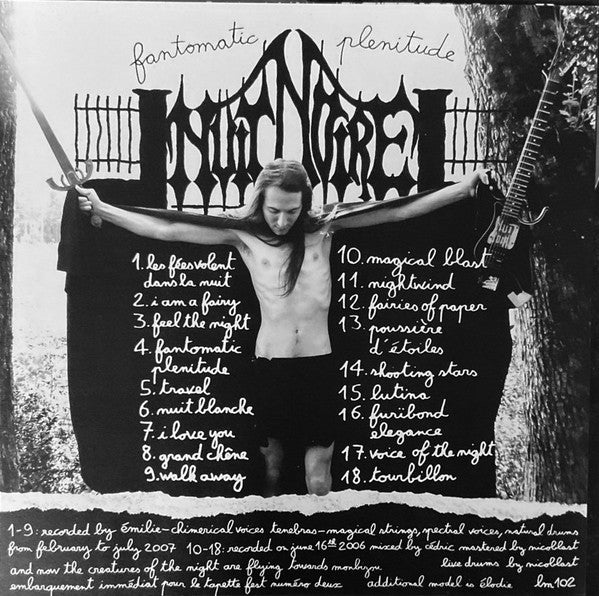 fantomatic plenitude
NUIT NOIRE
1. les fées volent
dans la nuit
2. i am a fairy
3. feel the night
4. fantomatic
plenitude
5. travel
6. nuit blanche
7. i love you
8. grand chêne
9. walk away
10. magical blast
11. nightwind
12. fairies of paper
13. poussière
d'étoiles
14. shooting stars
15. lutina
16. furibond
elegance
17. voice of the night
18. tourbillon
1-9: recorded by émilie - chimerical voices tenebras - magical strings, spectral voices, natural drums
from february to july 2007 10-18: recorded on june 16th 2006 mixed by cédric mastered by nicoblast
and now the creatures of the night are flying towards monbizou live drums by nicoblast
embarquement immédiat pour le tapette fest numéro deux additional model is élodie lm102